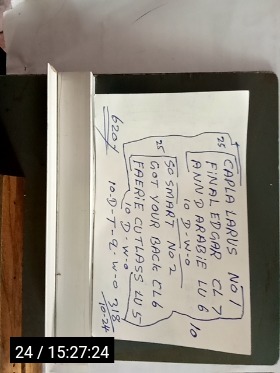 CAPLA LARUS NO 1
25 FINAL EDGAR CL 7
ANND ARABIE LU 6
10 D-W-O 10
25 SO SMART NO 2
GOT YOUR BACK CL6
FAERIE CUTLASS LU 5
10 D-W-O
10-D-T-Q-W-O 318
6207 10-24
24 / 15:27:24